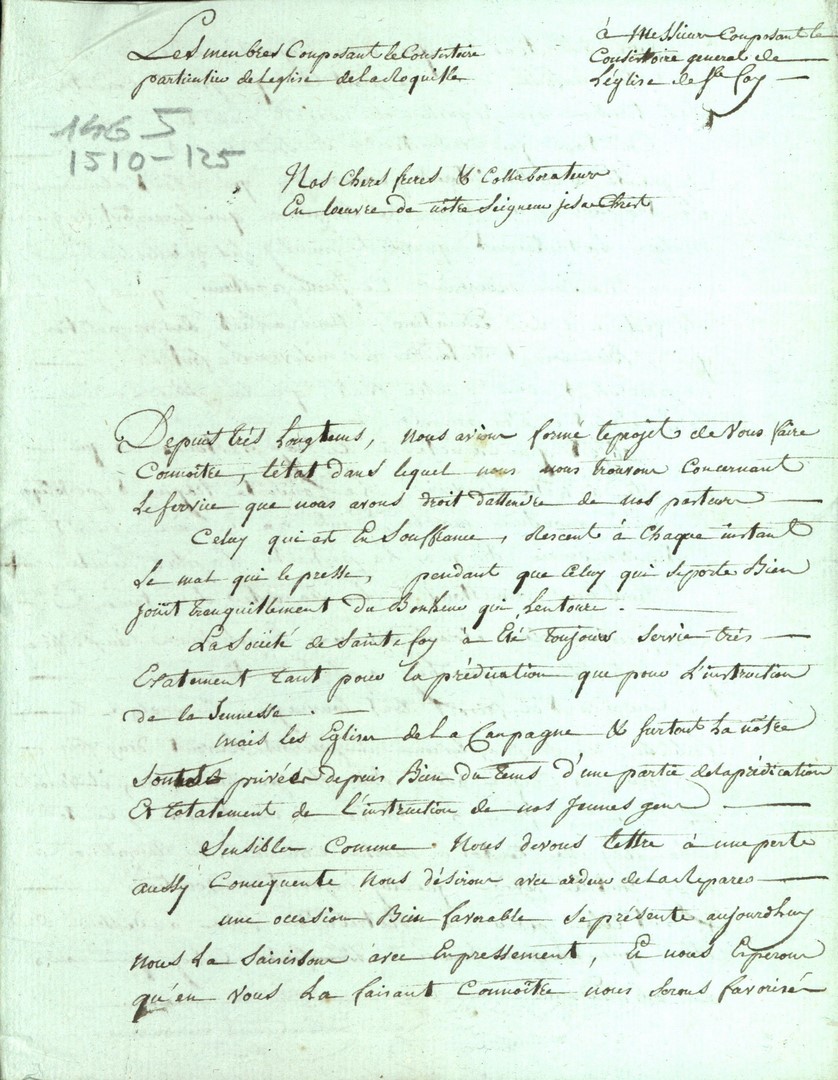 Les menbres Composant le Consistoire
particulier de Leglise de la Roquille
à Messieurs Composant le
Consistoire general de
L'église de Ste foy
1510-125
Nos Chers freres & Collaborateurs
En Loeuvre de nôtre Seigneur jesu Christ
Depuis trés Longtems, nous avions formé le projet de Vous faire
Connoître, l'état dans lequel nous nous trouvons Concernant
Le service que nous avons droit d'attendre de nos pasteurs
Celuy qui est En Souffrance, Resent à Chaque instant
Le mal qui le presse, pendant que Celuy qui se porte Bien
joüit tranquillement du Bonheur qui Lentoure.
La Société de Sainte foy à Eté toujours Servie trés
Exatement tant pour la prédication que pour L'instruction
de la Jeunesse.
mais les Eglises de La Campagne & surtout La nôtre
sont privées depuis Bien du tems d'une partie de la prédication
Et totalement de L'instruction de nos Jeunes gens
Sensibles Comme Nous devons L'ettre à une perte
aussy Consequente Nous désirons avec ardeur de La Reparer
une occasion Bien favorable se présente aujourdhuy
Nous La Saisissons avec Enpressement, Et nous Esperons
qu'en vous La faisant Connoître nous serons favorisés